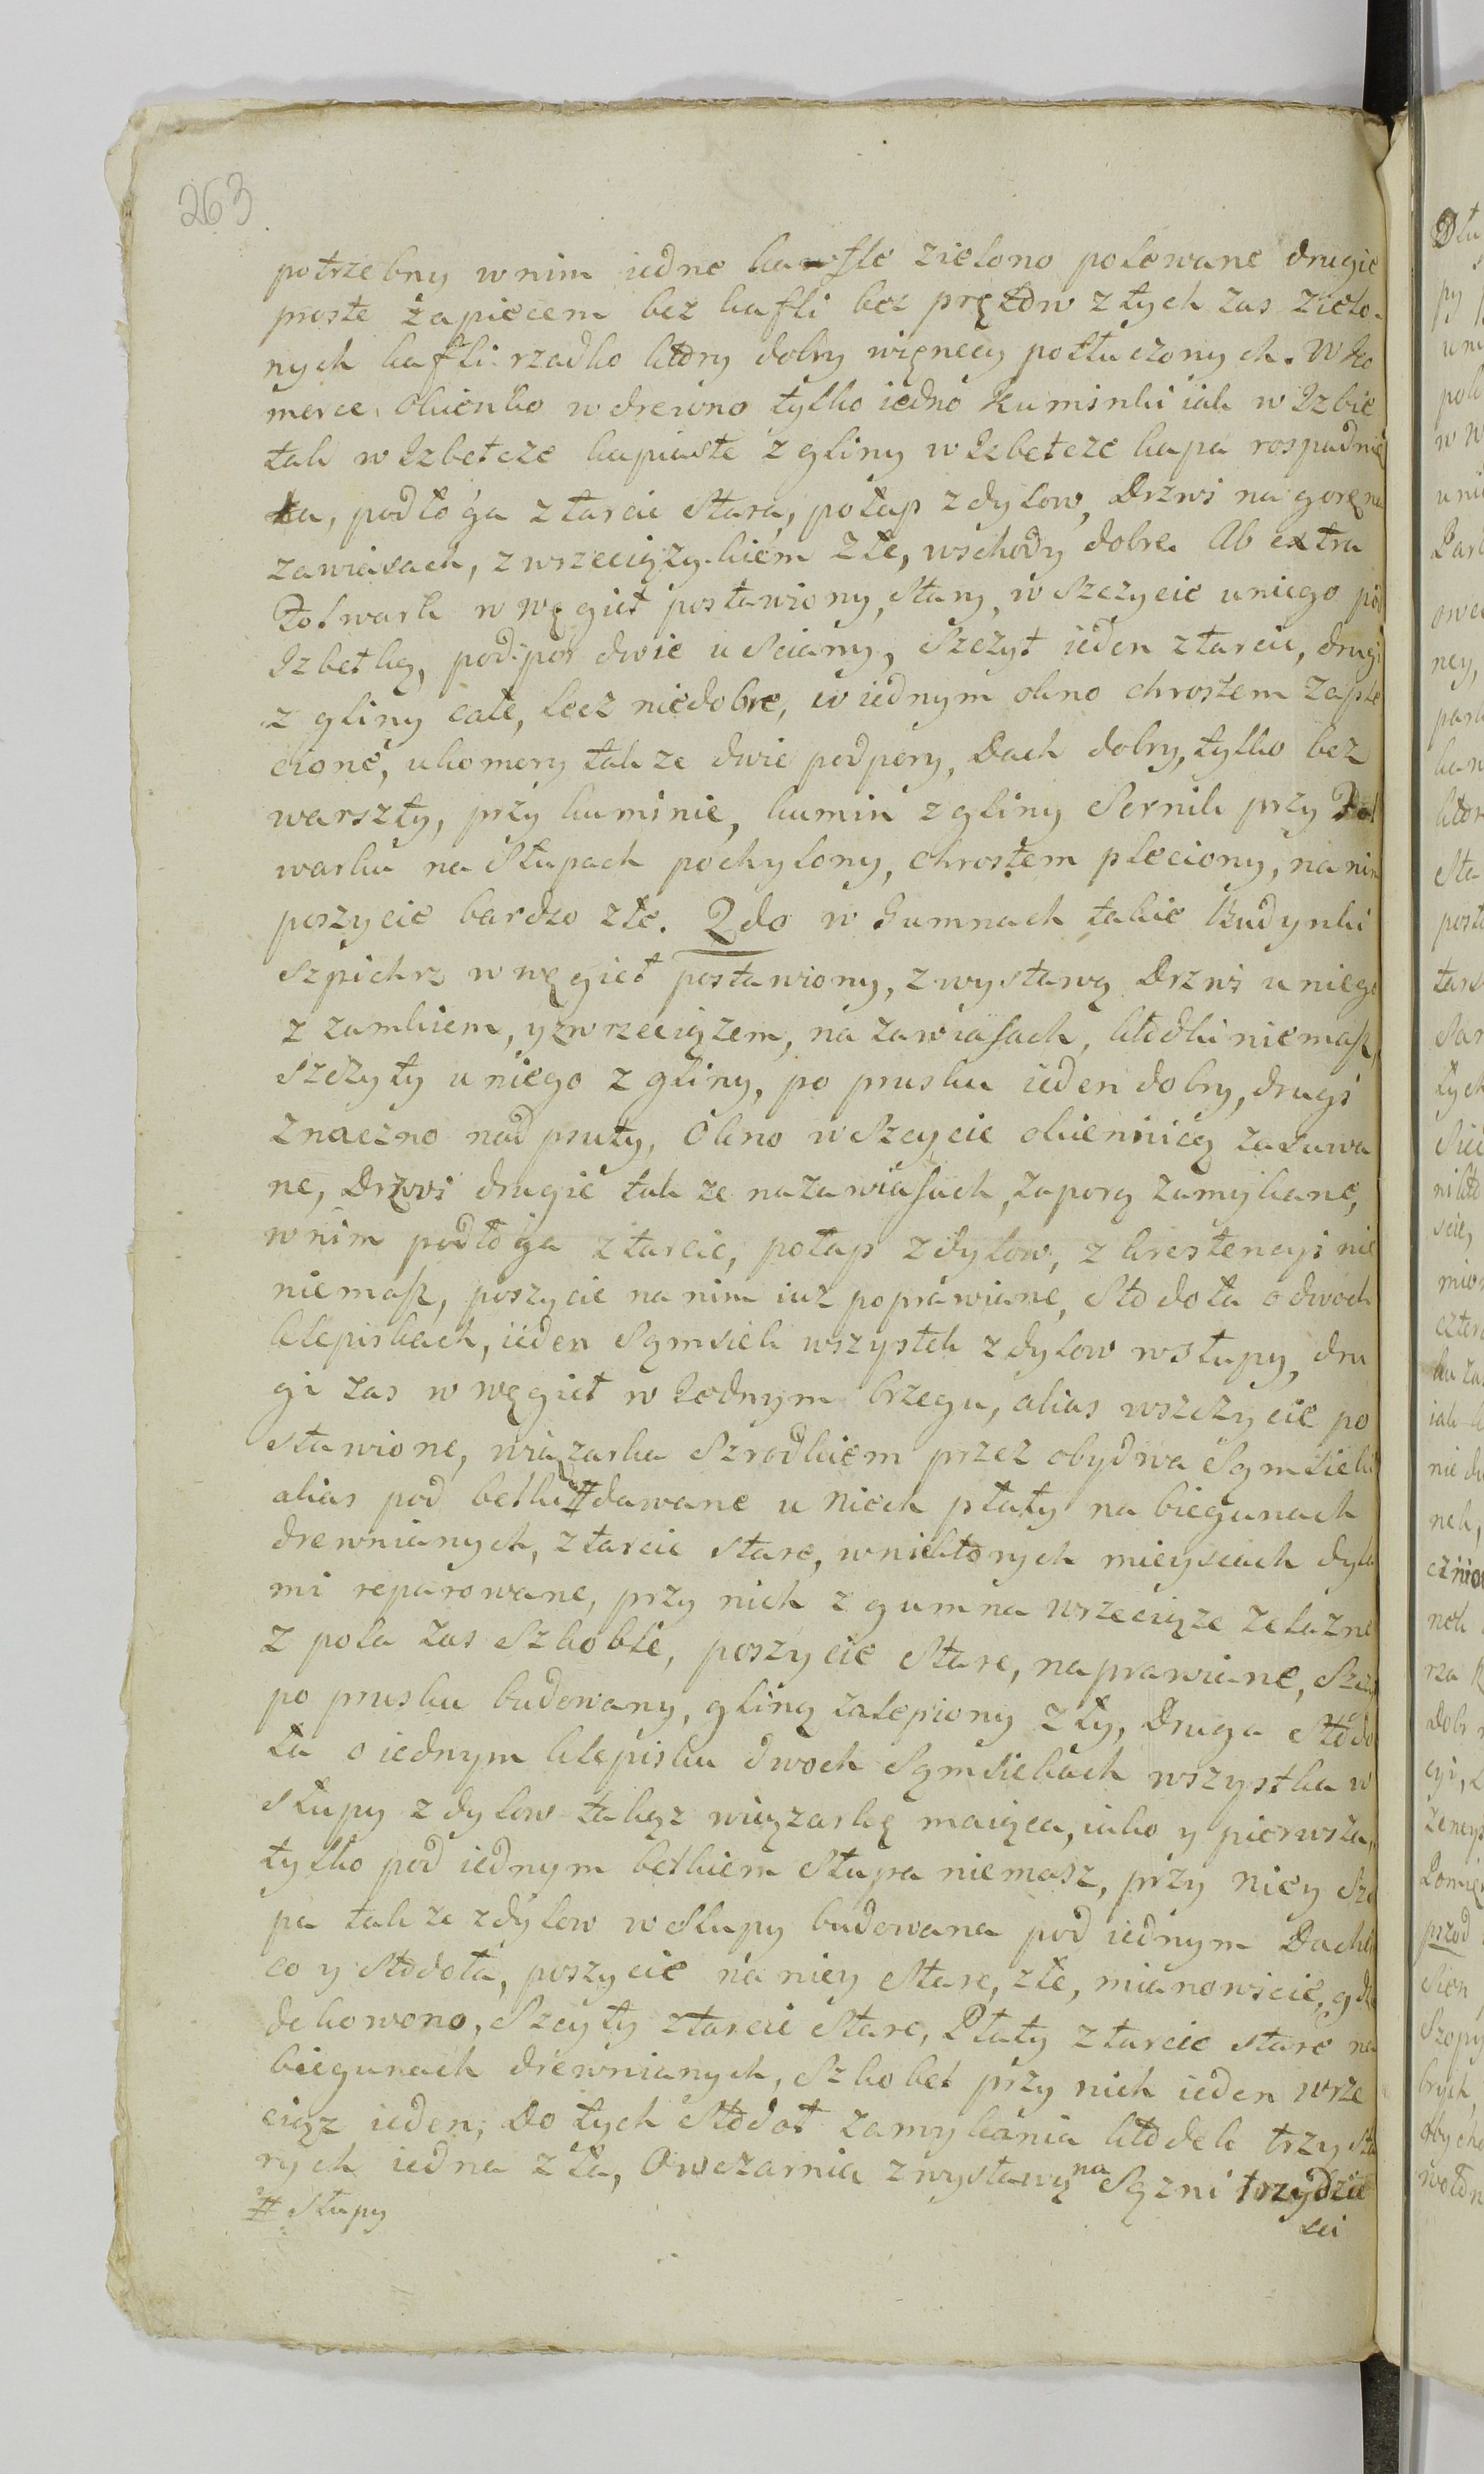 263
potrzebny w nim iedne kafle zielono polewane drugie
proste zapiecem bez kafli bez prętow z tych zas zielo-
nych kafli rzadko ktory dobry więnecy potłuczonych. W Ko
merce Okienko w drewno tylko iedno Kuminki iak w Izbie
tak w Izbetcze kapiaste z gliny w Izbetcze kapa rospadnie
ta, podłoga z tarcic stara, połap z dylow, Drzwi na gorę na
zawiasach, z wrzeciązykiem złe, wschody dobre. Ab extra
Folwark w węgieł postawiony, stary, w szczycie u niego pod
Izbetką, podpor dwie u sciany, szczyt ieden z tarcic, drugi
z gliny całe, lecz niedobre, w iednym okno chrostem zaple
cione, u komory takze dwie podpory, Dach dobry, tylko bez
warszty, przy kuminie, kumin z gliny Sernik przy Fol
warku na słupach pochylony, chrostem pleciony, na nim
poszycie bardzo złe. 2do w Gumnach takie Budynki
Szpichrz w węgieł postawiony, z wystawą Drzwi u niego
z zamkiem, y z wrzeciązem, na zawiasach, kłodki niemasz,
szczyty u niego z gliny, po prusku ieden dobry, drugi
znaczno nadpsuty, Okno w Szczycie okiennicą zasuwa
ne, Drzwi drugie takze na zawiasach, zaporą zamykane,
w nim podłoga z tarcic, połap z dylow, z krestencyi nic
niemasz, poszycie na nim iuz poprawiane, Stodoła o dwoch
klepiskach, ieden Sąmsiek wszystek z dylow w słupy, dru
gi zas w węgieł w Iednym brzegu, alias w szczycie po
stawione, wiązarka Szrodkiem przez obydwa Sąmsieki
alias pod belki # dawane u nich płaty na biegunach
drewnianych, z tarcic stare, w niektorych mieyscach dyla
mi reparowane, przy nich z gumna wrzeciąze zelazne
z pola zas Szkoble, poszycie stare, naprawiane, Szczyt
po prusku budowany, gliną zalepiony zły, Druga Stodo
ła o iednym klepisku dwoch Sąmsiekach wszystka w
słupy z dylow takąz wiązarkę maiąca, iako y pierwsza,
tylko pod iednym belkiem słupa niemasz, przy niey Szo
pa takze z dylow w słupy budowana pod iednym Dachem
co y stodoła, poszycie na niey stare, złe, mianowicie, gdzie
dekowono, Szczyty z tarcic stare, Płaty z tarcic stare na
biegunach drewnianych, Szkobel przy nich ieden wrze
ciąz ieden; Do tych Stodoł zamykania kłodek trzy sta
rych iedna zła, Owczarnia z wystawą na Sązni trzydzie
sci
# słupy